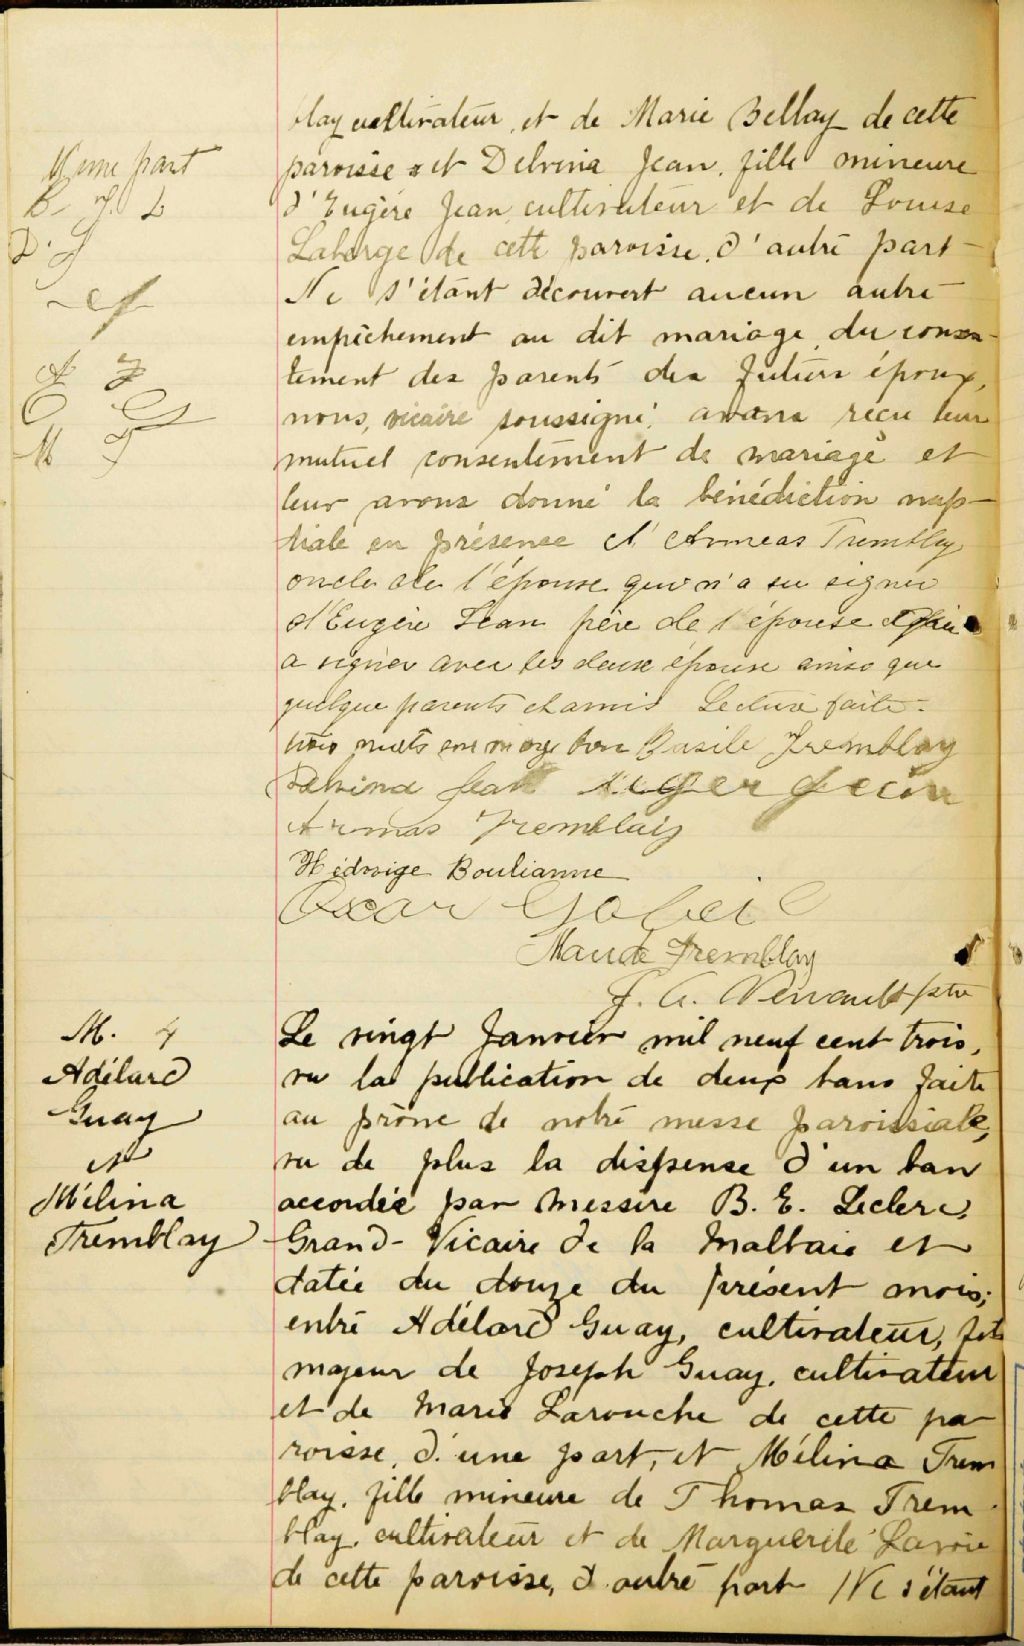 blay cultivateur, et de Marie Bellay de cette
paroisse et Delvina Jean, fille mineure
d'Eugère Jean, cultivateur et de Louise
Laberge de cette paroisse, d'autre part
Ne s'étant découvert aucun autre
empêchement au dit mariage, du consen-
tement des parents des futurs époux,
nous, vicaire soussigné, avons reçu leur
mutuel consentement de mariage et
leur avons donné la bénédiction nup-
tiale en présence d'
Tremblay
oncle de l'épouse qui n'a su signer
d'Eugère Jean père de l'épouse qui
a signer avec les deux épouse ainso que
quelque parents et amis Lecture faite.
trois mots en marge bon Basile Tremblay
Delvina Jean
Armas Tremblay
Hédwige Boulianne
Oscar Gobeil
Maude Tremblay
ptre
une part
B. J. L
D. J
et
A J
E G
M J
M. 4
Adélard
Guay
et
Mélina
Tremblay
Le vingt Janvier mil neuf cent trois,
vu la publication de deux bans faite
au prône de notre messe paroissiale,
vu de plus la dispense d'un ban
accordée par Messire B. E. Leclerc,
Grand-Vicaire de la Malbaie et
datée du douze du présent mois;
entre Adélard Guay, cultivateur, fils
majeur de Joseph Guay, cultivateur
et de Marie Larouche de cette pa-
roisse, d'une part, et Mélina Trem
blay, fille mineure de Thomas Trem-
blay, cultivateur et de Marguerite Lavoie
de cette paroisse, d'autre part Ne s'étant